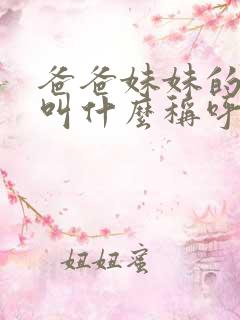 爸爸妹妹的
叫什麼稱呼
妞妞蜜